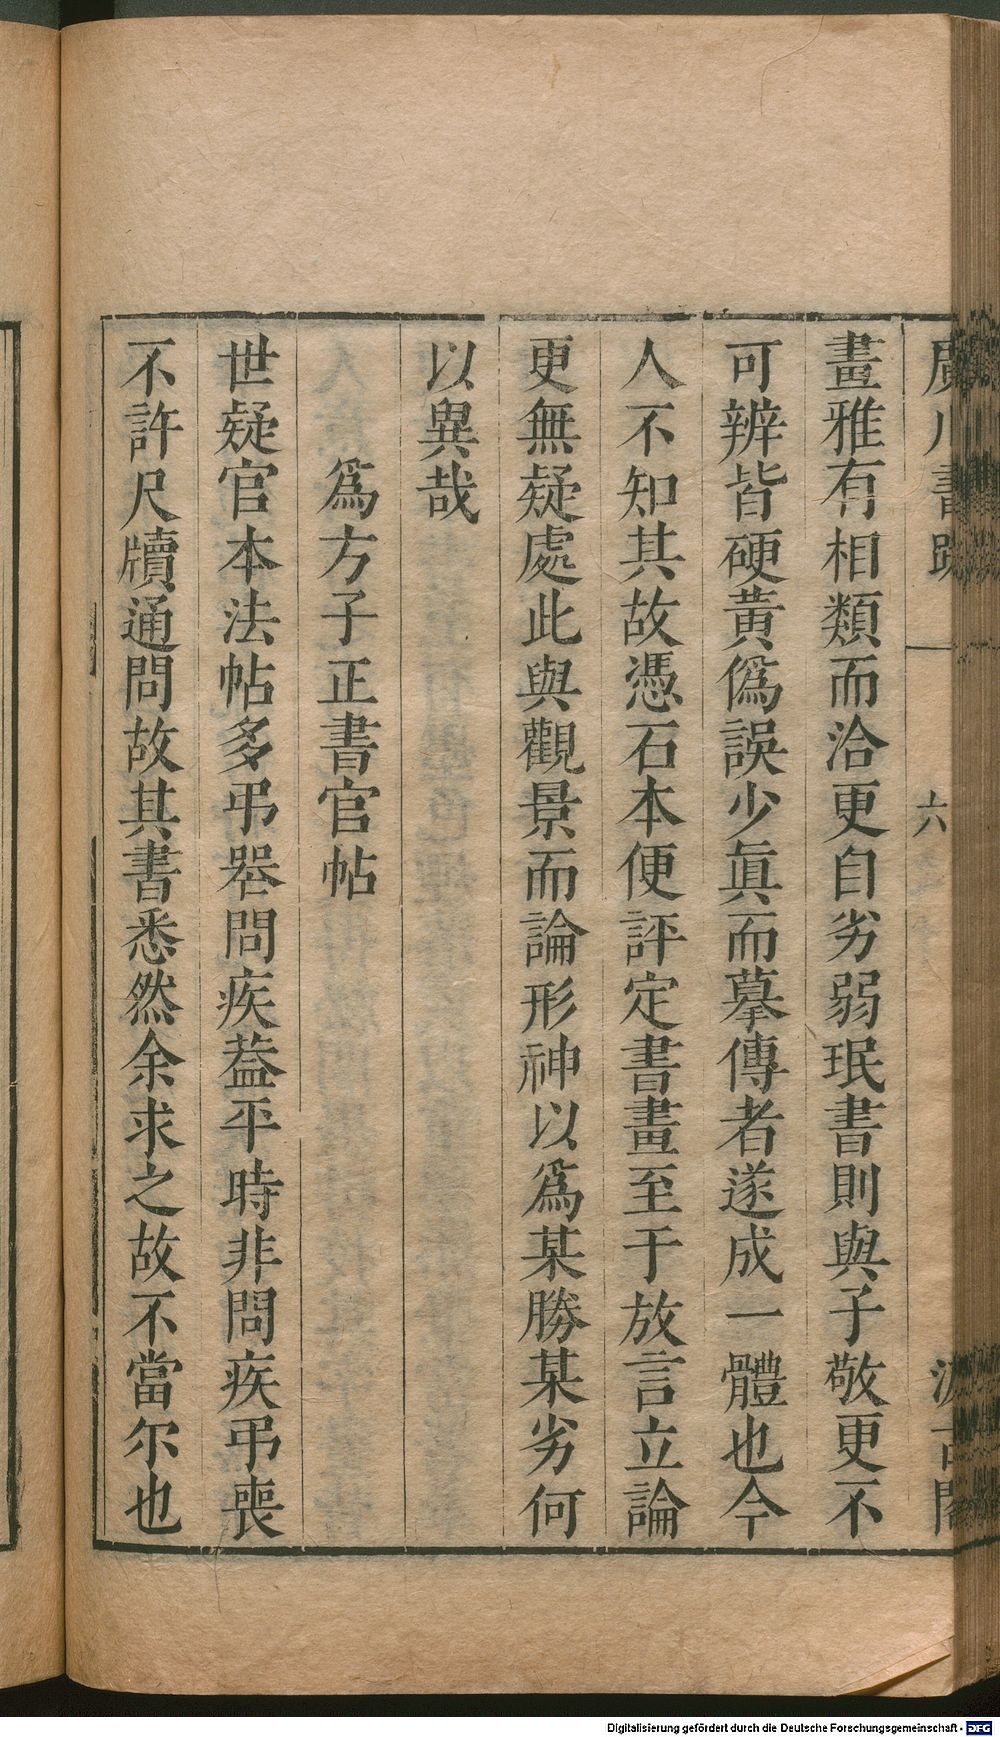 廣川書跋
六
汲古閣
畫雅有相類而洽更自劣弱珉書則與子敬更不
可辨皆硬黃僞誤少眞而摹傳者遂成一體也今
人不知其故憑石本便評定書畫至于放言立論
更無疑處此與觀景而論形神以爲某勝某劣何
以異哉
爲方子正書官帖
世疑官本法帖多弔喪問疾葢平時非問疾弔喪
不許尺牘通問故其書悉然余求之故不當尔也
Digitalisierung gefördert durch die Deutsche Forschungsgemeinschaft - DFG